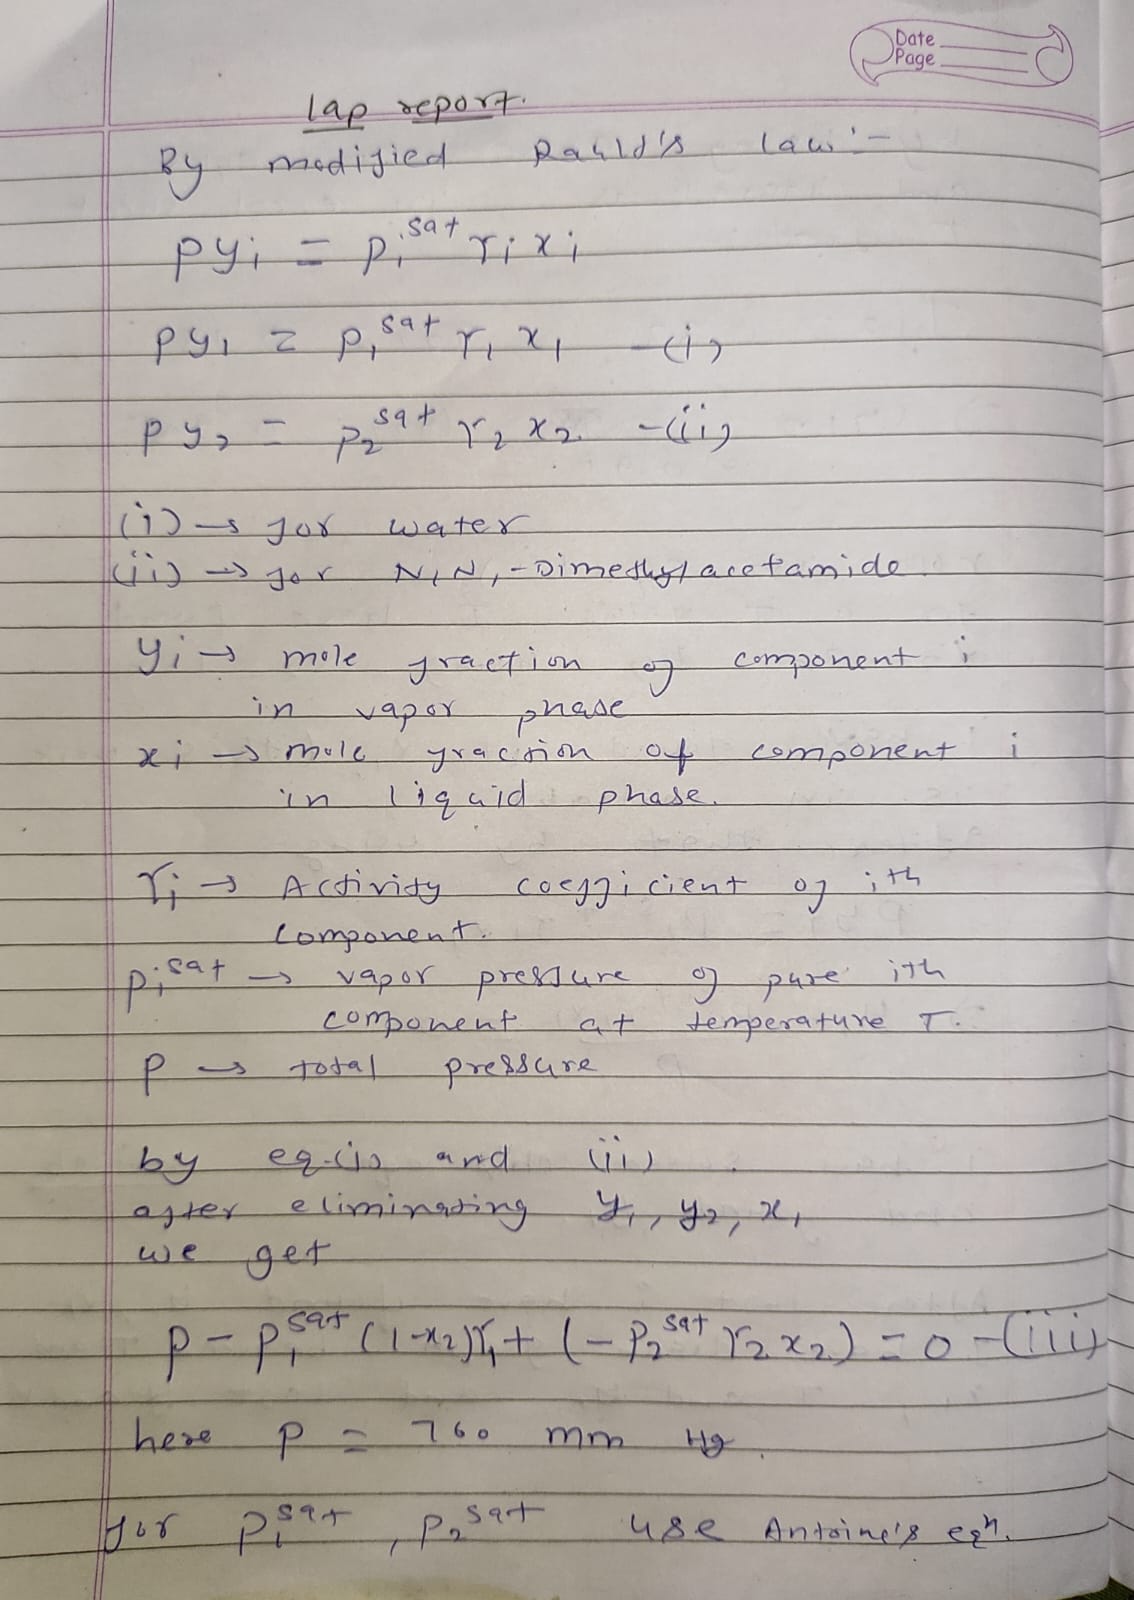 Date
Page
lap report.
By modified Raold's law:-
Pyi = Pi^sat γi xi
Py1 = P1^sat γ1 x1 -(i)
Py2 = P2^sat γ2 x2 -(ii)
(i) → for water
(ii) → for N,N,-Dimethylacetamide
yi → mole fraction of component i
in vapor phase
xi → mole fraction of component i
in liquid phase.
γi → Activity coefficient of ith
component.
Pi^sat → vapor pressure of pure ith
component at temperature T.
P → total pressure
by eq-(i) and (ii)
after eliminating y1, y2, x1
we get
P - P1^sat (1-x2)γ1 + (-P2^sat γ2 x2) = 0 -(iii)
here P = 760 mm Hg.
for P1^sat, P2^sat use Antoine's eqn.